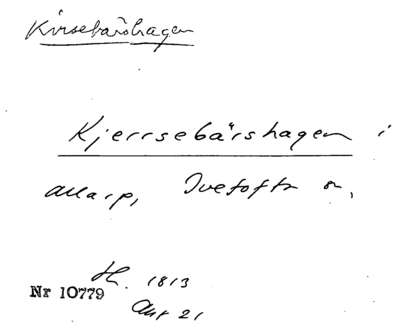 Kirsebärshagen
Kjerrsebärshagen i
Allarp, Ivetofta sn,
H. 1813
Nr 10779
Akt 21